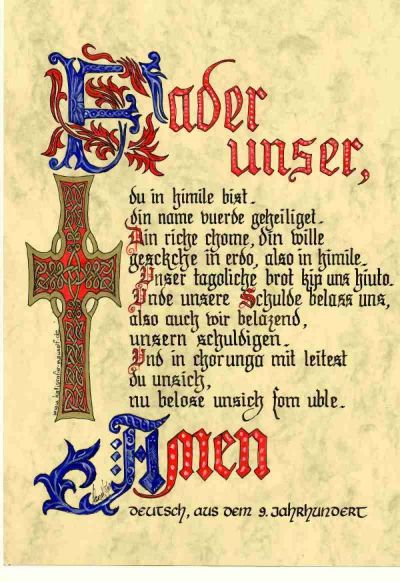 Fader
unser,
du in himile bist.
din name vuerde geheiliget.
Din riche chome, din wille
geskche in erdo, also in himile.
Unser tagoliche brot kip uns hiuto.
Unde unsere Schulde belass uns,
also auch wir belazend,
unsern schuldigen.
Und in chorunga mit leitest
du unsich,
nu belose unsich fom uble.
Amen
deutsch, aus dem 9. Jahrhundert